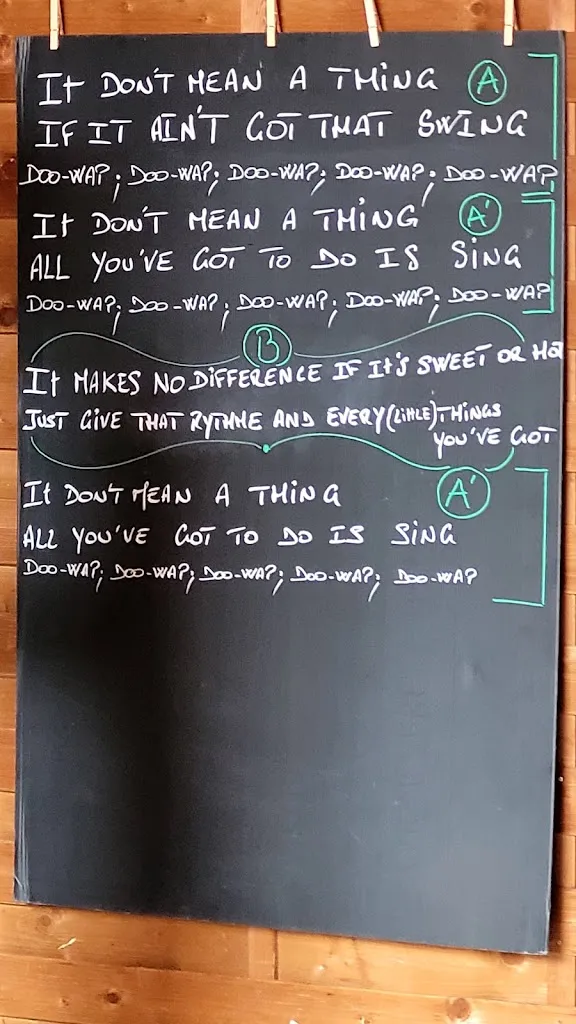 It DON'T MEAN A THING A
IF IT AIN'T GOT THAT SWING
DOO-WAP; DOO-WAP; DOO-WAP; DOO-WAP; DOO-WAP
It DON'T MEAN A THING A'
ALL YOU'VE GOT TO DO IS SING
DOO-WAP; DOO-WAP; DOO-WAP; DOO-WAP; DOO-WAP
B
It MAKES NO DIFFERENCE IF It'S SWEET OR HOT
JUST GIVE THAT RYTHME AND EVERY (LittLE) THINGS
YOU'VE GOT
It DON'T MEAN A THING A'
ALL YOU'VE GOT TO DO IS SING
DOO-WAP; DOO-WAP; DOO-WAP; DOO-WAP; DOO-WAP